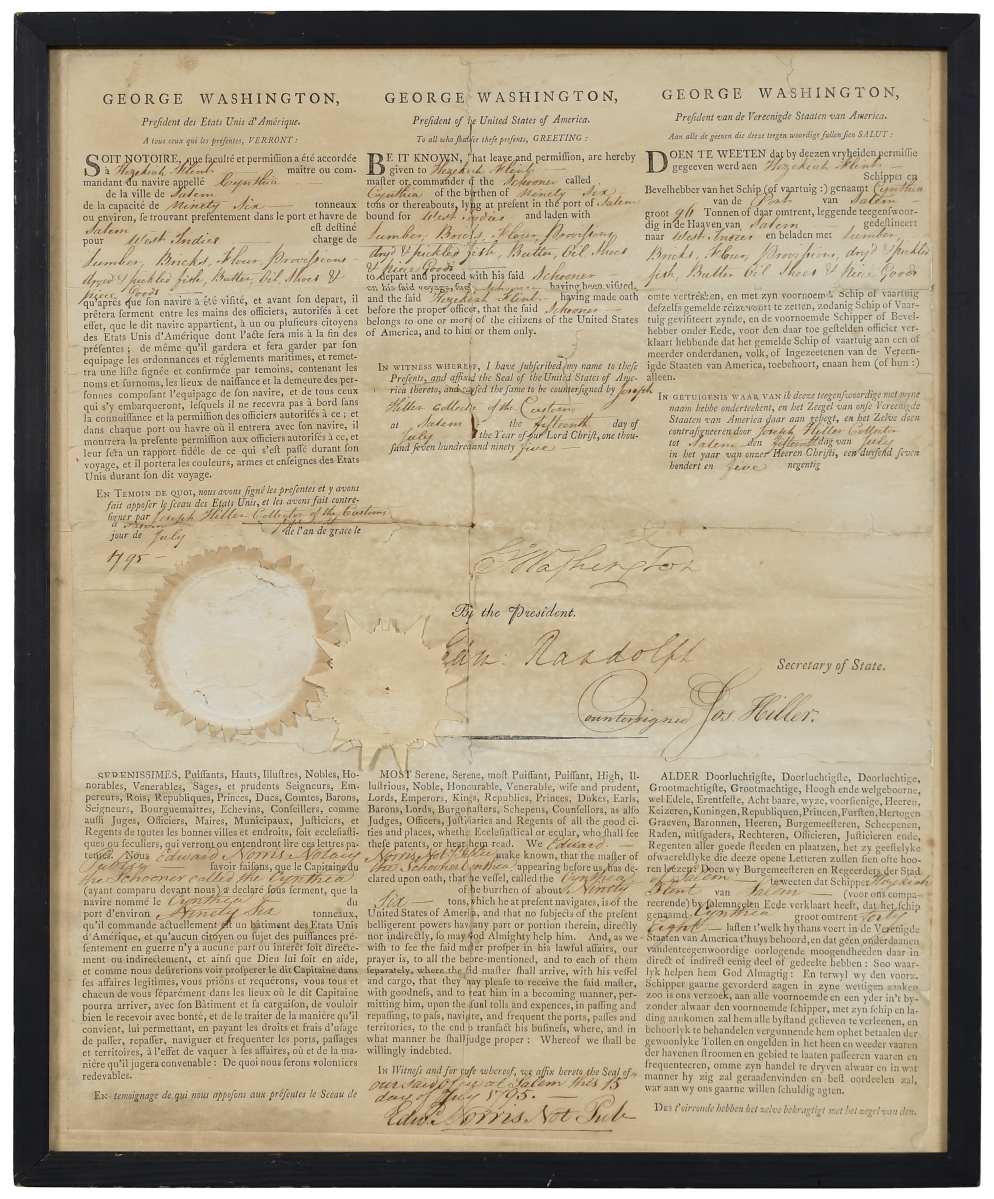 GEORGE WASHINGTON,
President des Etats Unis d'Amérique.
A tous ceux qui les presentes, VERRONT:
SOIT NOTOIRE, que faculté et permission a été accordée
à Hezekiah Flint maître ou com-
mandant du navire appellé Cynthia
de la ville de Salem
de la capacité de Ninety Six tonneaux
ou environ, se trouvant presentement dans le port et havre de
Salem est destiné
pour West Indies chargé de
Lumber, Bricks, Flour, Provissions
dryd & pickled fish, Butter, Oil, Shoes &
piece Goods
qu'après que son navire a été visité, et avant son départ, il
prêtera serment entre les mains des officiers, autorisés à cet
effet, que le dit navire appartient, à un ou plusieurs citoyens
des Etats Unis d'Amérique dont l'acte sera mis à la fin des
présentes; de même qu'il gardera et fera garder par son
equipage les ordonnances et réglemens maritimes, et remet-
tra une liste signée et confirmée par temoins, contenant les
noms et surnoms, les lieux de naissance et la demeure des per-
sonnes composant l'equipage de son navire, et de tous ceux
qui s'y embarqueront, lesquels il ne recevra pas à bord sans
la connoissance et la permission des officiers autorisés à ce; et
dans chaque port ou havre où il entrera avec son navire, il
montrera la presente permission aux officiers autorisés à ce, et
leur fera un rapport fidèle de ce qui s'est passé durant son
voyage, et il portera les couleurs, armes et enseignes des Etats
Unis durant son dit voyage.
EN TEMOIN DE QUOI, nous avons signé les presentes et y avons
fait apposer le sceau des Etats Unis, et les avons fait contre-
signer par Joseph Hiller Collector of the Customs
à Salem
jour de July de l'an de grace le
1795
GEORGE WASHINGTON,
President of the United States of America.
To all who shall see these presents, GREETING:
BE IT KNOWN, That leave and permission, are hereby
given to Hezekiah Flint
master or commander of the Schooner called
Cynthia of the burthen of Ninety Six
tons or thereabouts, lying at present in the port of Salem
bound for West Indies and laden with
Lumber, Bricks, Flour, Provisions,
dryd & pickled fish, Butter, Oil, Shoes
& piece Goods
to depart and proceed with his said Schooner
on his said voyage, such Schooner having been visited,
and the said Hezekiah Flint having made oath
before the proper officer, that the said Schooner
belongs to one or more of the citizens of the United States
of America, and to him or them only.
IN WITNESS WHEREOF, I have subscribed my name to these
Presents, and affixed the Seal of the United States of Ame-
rica thereto, and caused the same to be countersigned by Joseph
Hiller Collector of the Customs
at Salem the fifteenth day of
July in the Year of our Lord Christ, one thou-
sand seven hundred and ninety five
GEORGE WASHINGTON,
President van de Vereenigde Staaten van America.
Aan alle de geenen die deeze teegen woordige sullen sien SALUT:
DOEN TE WEETEN dat by deezen vryheiden permissie
gegeeven werd aen Hezekiah Flint
Schipper en
Bevelhebber van het Schip (of vaartuig:) genaamt Cynthia
van de Port van Salem
groot 96 Tonnen of daar omtrent, leggende teegenswoor-
dig in de Haaven van Salem gedestineert
naar West Indies en beladen met Lumber
Bricks, Flour, Provissions, dryd & pickled
fish, Butter Oil Shoes & piece Goods
omte vertrekken, en met zyn voornoemde Schip of vaartuig
deszelfs gemelde reize voort te zetten, zodanig Schip of Vaar-
tuig gevisiteert zynde, en de voornoemde Schipper of Bevel-
hebber onder Eede, voor den daar toe gestelden officier ver-
klaart hebbende dat het gemelde Schip of vaartuig aan een of
meerder onderdanen, volk, of Ingezeetenen van de Vereen-
igde Staaten van America, toebehoort, emaan hem (of hun:)
alleen.
IN GETUIGENIS WAAR VAN ik deeze teegenswoordige met myne
naam hebbe onderteekent, en het Zeegel van onse Vereenigde
Staaten van America daar aan gehegt, en het Zelve doen
contrasigneren door Joseph Hiller Collector
tot Salem den fifteenth dag van July
in het yaar van onzer Heeren Christi, een duysend seven
hondert en five negentig
G. Washington
By the President.
Edm: Randolph
Secretary of State.
Countersigned Jos Hiller.
SERENISSIMES, Puissants, Hauts, Illustres, Nobles, Ho-
norables, Venerables, Sages, et prudents Seigneurs, Em-
pereurs, Rois, Republiques, Princes, Ducs, Comtes, Barons,
Seigneurs, Bourguemaitres, Echevins, Conseillers, comme
aussi Juges, Officiers, Maires, Municipaux, Justiciers, et
Regents de toutes les bonnes villes et endroits, soit ecclesiasti-
ques ou seculiers, qui verront ou entendront lire ces lettres pa-
tentes. Nous Edward Norris Notary
Publick favoir faisons, que le Capitaine du
the Schooner called the Cynthia
(ayant comparu devant nous) a déclaré sous serment, que la
navire nommé le Cynthia du
port d'environ Ninety Six tonneaux,
qu'il commande actuellement est un bâtiment des Etats Unis
d'Amérique, et qu'aucun citoyen ou sujet des puissances pré-
sentement en guerre n'y a aucune part ou interêt soit directe-
ment ou indirectement, et ainsi que Dieu lui soit en aide,
et comme nous desirerions voir prosperer le dit Capitaine dans
ses affaires legitimes, vous prions et requérons, vous tous et
chacun de vous séparément dans les lieux où le dit Capitaine
pourra arriver, avec son Bâtiment et sa cargaison, de vouloir
bien le recevoir avec bonté, et de le traiter de la manière qu'il
convient, lui permettant, en payant les droits et frais d'usage
de passer, repasser, naviguer et frequenter les ports, passages
et territoires, à l'effet de vaquer à ses affaires, où et de la ma-
nière qu'il jugera convenable: De quoi nous serons volontiers
redevables.
En temoignage de qui nous apposons aux présentes le Sceau de
MOST Serene, Serene, most Puissant, Puissant, High, Il-
lustrious, Noble, Honourable, Venerable, wise and prudent,
Lords, Emperors, Kings, Republics, Princes, Dukes, Earls,
Barons, Lords, Burgomasters, Schepens, Counsellors, as also
Judges, Officers, Justiciaries and Regents of all the good ci-
ties and places, whether Ecclesiastical or secular, who shall see
these patents, or hear them read. We Edward
Norris Not. Publick make known, that the master of
the Schooner Cynthia appearing before us, has de-
clared upon oath, that the vessel, called the Cynthia
of the burthen of about Ninety
Six tons, which he at present navigates, is of the
United States of America, and that no subjects of the present
belligerent powers have any part or portion therein, directly
nor indirectly, so may God Almighty help him. And, as we
wish to see the said master prosper in his lawful affairs, our
prayer is, to all the before-mentioned, and to each of them
separately, where the said master shall arrive, with his vessel
and cargo, that they may please to receive the said master,
with goodness, and to treat him in a becoming manner, per-
mitting him, upon the usual tolls and expences, in passing and
repassing, to pass, navigate, and frequent the ports, passes and
territories, to the end to transact his business, where, and in
what manner he shall judge proper: Whereof we shall be
willingly indebted.
In Witness and for cause whereof, we affix hereto the Seal of
our said office at Salem this 15
day of July 1795.
Edwd. Norris Not Pub
ALDER Doorluchtigste, Doorluchtigste, Doorluchtige,
Grootmachtigste, Grootmachtige, Hoogh ende welgeboorne,
wel Edele, Erentfeste, Acht baare, wyze, voorsienige, Heeren,
Keizeren, Koningen, Republiquen, Princen, Fursten, Hertogen
Graeven, Baronnen, Heeren, Burgemeesteren, Scheepenen,
Raden, mitsgaders, Rechteren, Officieren, Justicieren ende,
Regenten aller goede steeden en plaatzen, het zy geestelyke
ofwaereldlyke die deeze opene Letteren zullen sien ofte hoo-
ren leezen: Doen wy Burgemeesteren en Regeerders der Stad
of Salem teweeten dat Schipper Hezekiah
Flint van Salem (voor ons compa-
reerende) by solemneelen Eede verklaart heeft, dat het schip
genaamd Cynthia groot omtrent Forty
Eight lasten t'welk hy thans voert in de Verenigde
Staaten van America t'huys behoord, en dat géén onderdaanen
vandenteegenwoordige oorlogende moogendheeden daar in
direct of indirect eenig deel of gedeelte hebben: Soo waar-
lyk helpen hem God Almagtig: En terwyl wy den voorz.
Schipper gaarne gevorderd zagen in zyne wettigen zaaken
zoo is ons verzoek, aan alle voornoemde en een yder in't by-
zonder alwaar den voornoemde schipper, met zyn schip en la-
ding aankomen zal hem alle bystand gelieven te verleenen, en
behoorlyk te behandelen vergunnende hem ophet betaalen der
gewoonlyke Tollen en ongelden in het heen en weeder vaaren
der havenen stroomen en gebied te laaten passeeren vaaren en
frequenteeren, omme zyn handel te dryven alwaar en in wat
manner hy zig zal geraadenvinden en best oordeelen zal,
war aan wy ons gaarne willen schuldig agten.
DES t'oirconde hebben het zelve bekragtigt met het zegel van den.